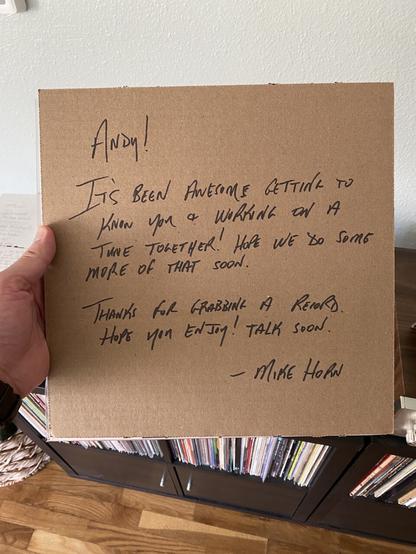 ANDY!
IT'S BEEN AWESOME GETTING TO
KNOW YOU & WORKING ON A
TUNE TOGETHER! HOPE WE DO SOME
MORE OF THAT SOON.
THANKS FOR GRABBING A RECORD.
HOPE YOU ENJOY! TALK SOON.
- MIKE HORN